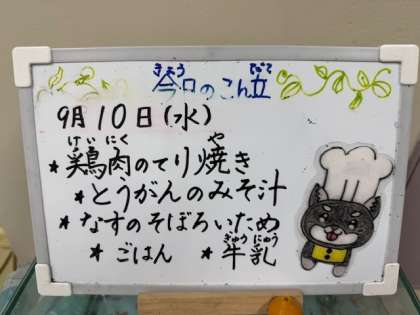 きょう
今日のこん立
だて
9月10日(水)
けいにく や
★鶏肉のてり焼き
★とうがんのみそ汁
★なすのそぼろいため
ぎゅうにゅう
★ごはん ★牛乳